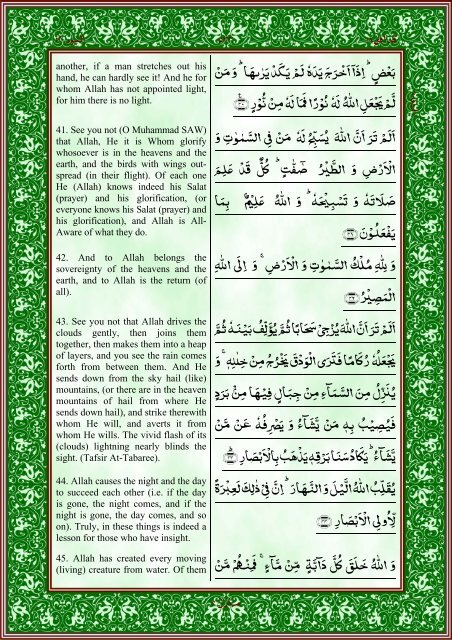 another, if a man stretches out his
hand, he can hardly see it! And he for
whom Allah has not appointed light,
for him there is no light.
41. See you not (O Muhammad SAW)
that Allah, He it is Whom glorify
whosoever is in the heavens and the
earth, and the birds with wings out-
spread (in their flight). Of each one
He (Allah) knows indeed his Salat
(prayer) and his glorification, (or
everyone knows his Salat (prayer) and
his glorification), and Allah is All-
Aware of what they do.
42. And to Allah belongs the
sovereignty of the heavens and the
earth, and to Allah is the return (of
all).
43. See you not that Allah drives the
clouds gently, then joins them
together, then makes them into a heap
of layers, and you see the rain comes
forth from between them. And He
sends down from the sky hail (like)
mountains, (or there are in the heaven
mountains of hail from where He
sends down hail), and strike therewith
whom He will, and averts it from
whom He wills. The vivid flash of its
(clouds) lightning nearly blinds the
sight. (Tafsir At-Tabaree).
44. Allah causes the night and the day
to succeed each other (i.e. if the day
is gone, the night comes, and if the
night is gone, the day comes, and so
on). Truly, in these things is indeed a
lesson for those who have insight.
45. Allah has created every moving
(living) creature from water. Of them
بَعْضٍ ؕ اِذَاۤ اَخْرَجَ يَدَهٗ لَمْ يَكَدْ يَرٰىهَا ؕ وَ مَنْ
لَّمْ يَجْعَلِ اللّٰهُ لَهٗ نُوْرًا فَمَا لَهٗ مِنْ نُّوْرٍ
اَلَمْ تَرَ اَنَّ اللّٰهَ يُسَبِّحُ لَهٗ مَنْ فِى السَّمٰوٰتِ وَ
الْاَرْضِ وَ الطَّيْرُ صٰٓفّٰتٍ ؕ كُلٌّ قَدْ عَلِمَ
صَلَاتَهٗ وَ تَسْبِيْحَهٗ ؕ وَ اللّٰهُ عَلِيْمٌۢ بِمَا
يَفْعَلُوْنَ
وَ لِلّٰهِ مُلْكُ السَّمٰوٰتِ وَ الْاَرْضِ ۚ وَ اِلَى اللّٰهِ
الْمَصِيْرُ
اَلَمْ تَرَ اَنَّ اللّٰهَ يُزْجِىْ سَحَابًا ثُمَّ يُؤَلِّفُ بَيْنَهٗ ثُمَّ
يَجْعَلُهٗ رُكَامًا فَتَرَى الْوَدْقَ يَخْرُجُ مِنْ خِلٰلِهٖ ۚ وَ
يُنَزِّلُ مِنَ السَّمَآءِ مِنْ جِبَالٍ فِيْهَا مِنْۢ بَرَدٍ
فَيُصِيْبُ بِهٖ مَنْ يَّشَآءُ وَ يَصْرِفُهٗ عَنْ مَّنْ
يَّشَآءُ ؕ يَكَادُ سَنَا بَرْقِهٖ يَذْهَبُ بِالْاَبْصَارِ
يُقَلِّبُ اللّٰهُ الَّيْلَ وَ النَّهَارَ ؕ اِنَّ فِىْ ذٰلِكَ لَعِبْرَةً
لِّاُولِى الْاَبْصَارِ
وَ اللّٰهُ خَلَقَ كُلَّ دَآبَّةٍ مِّنْ مَّآءٍ ۚ فَمِنْهُمْ مَّنْ